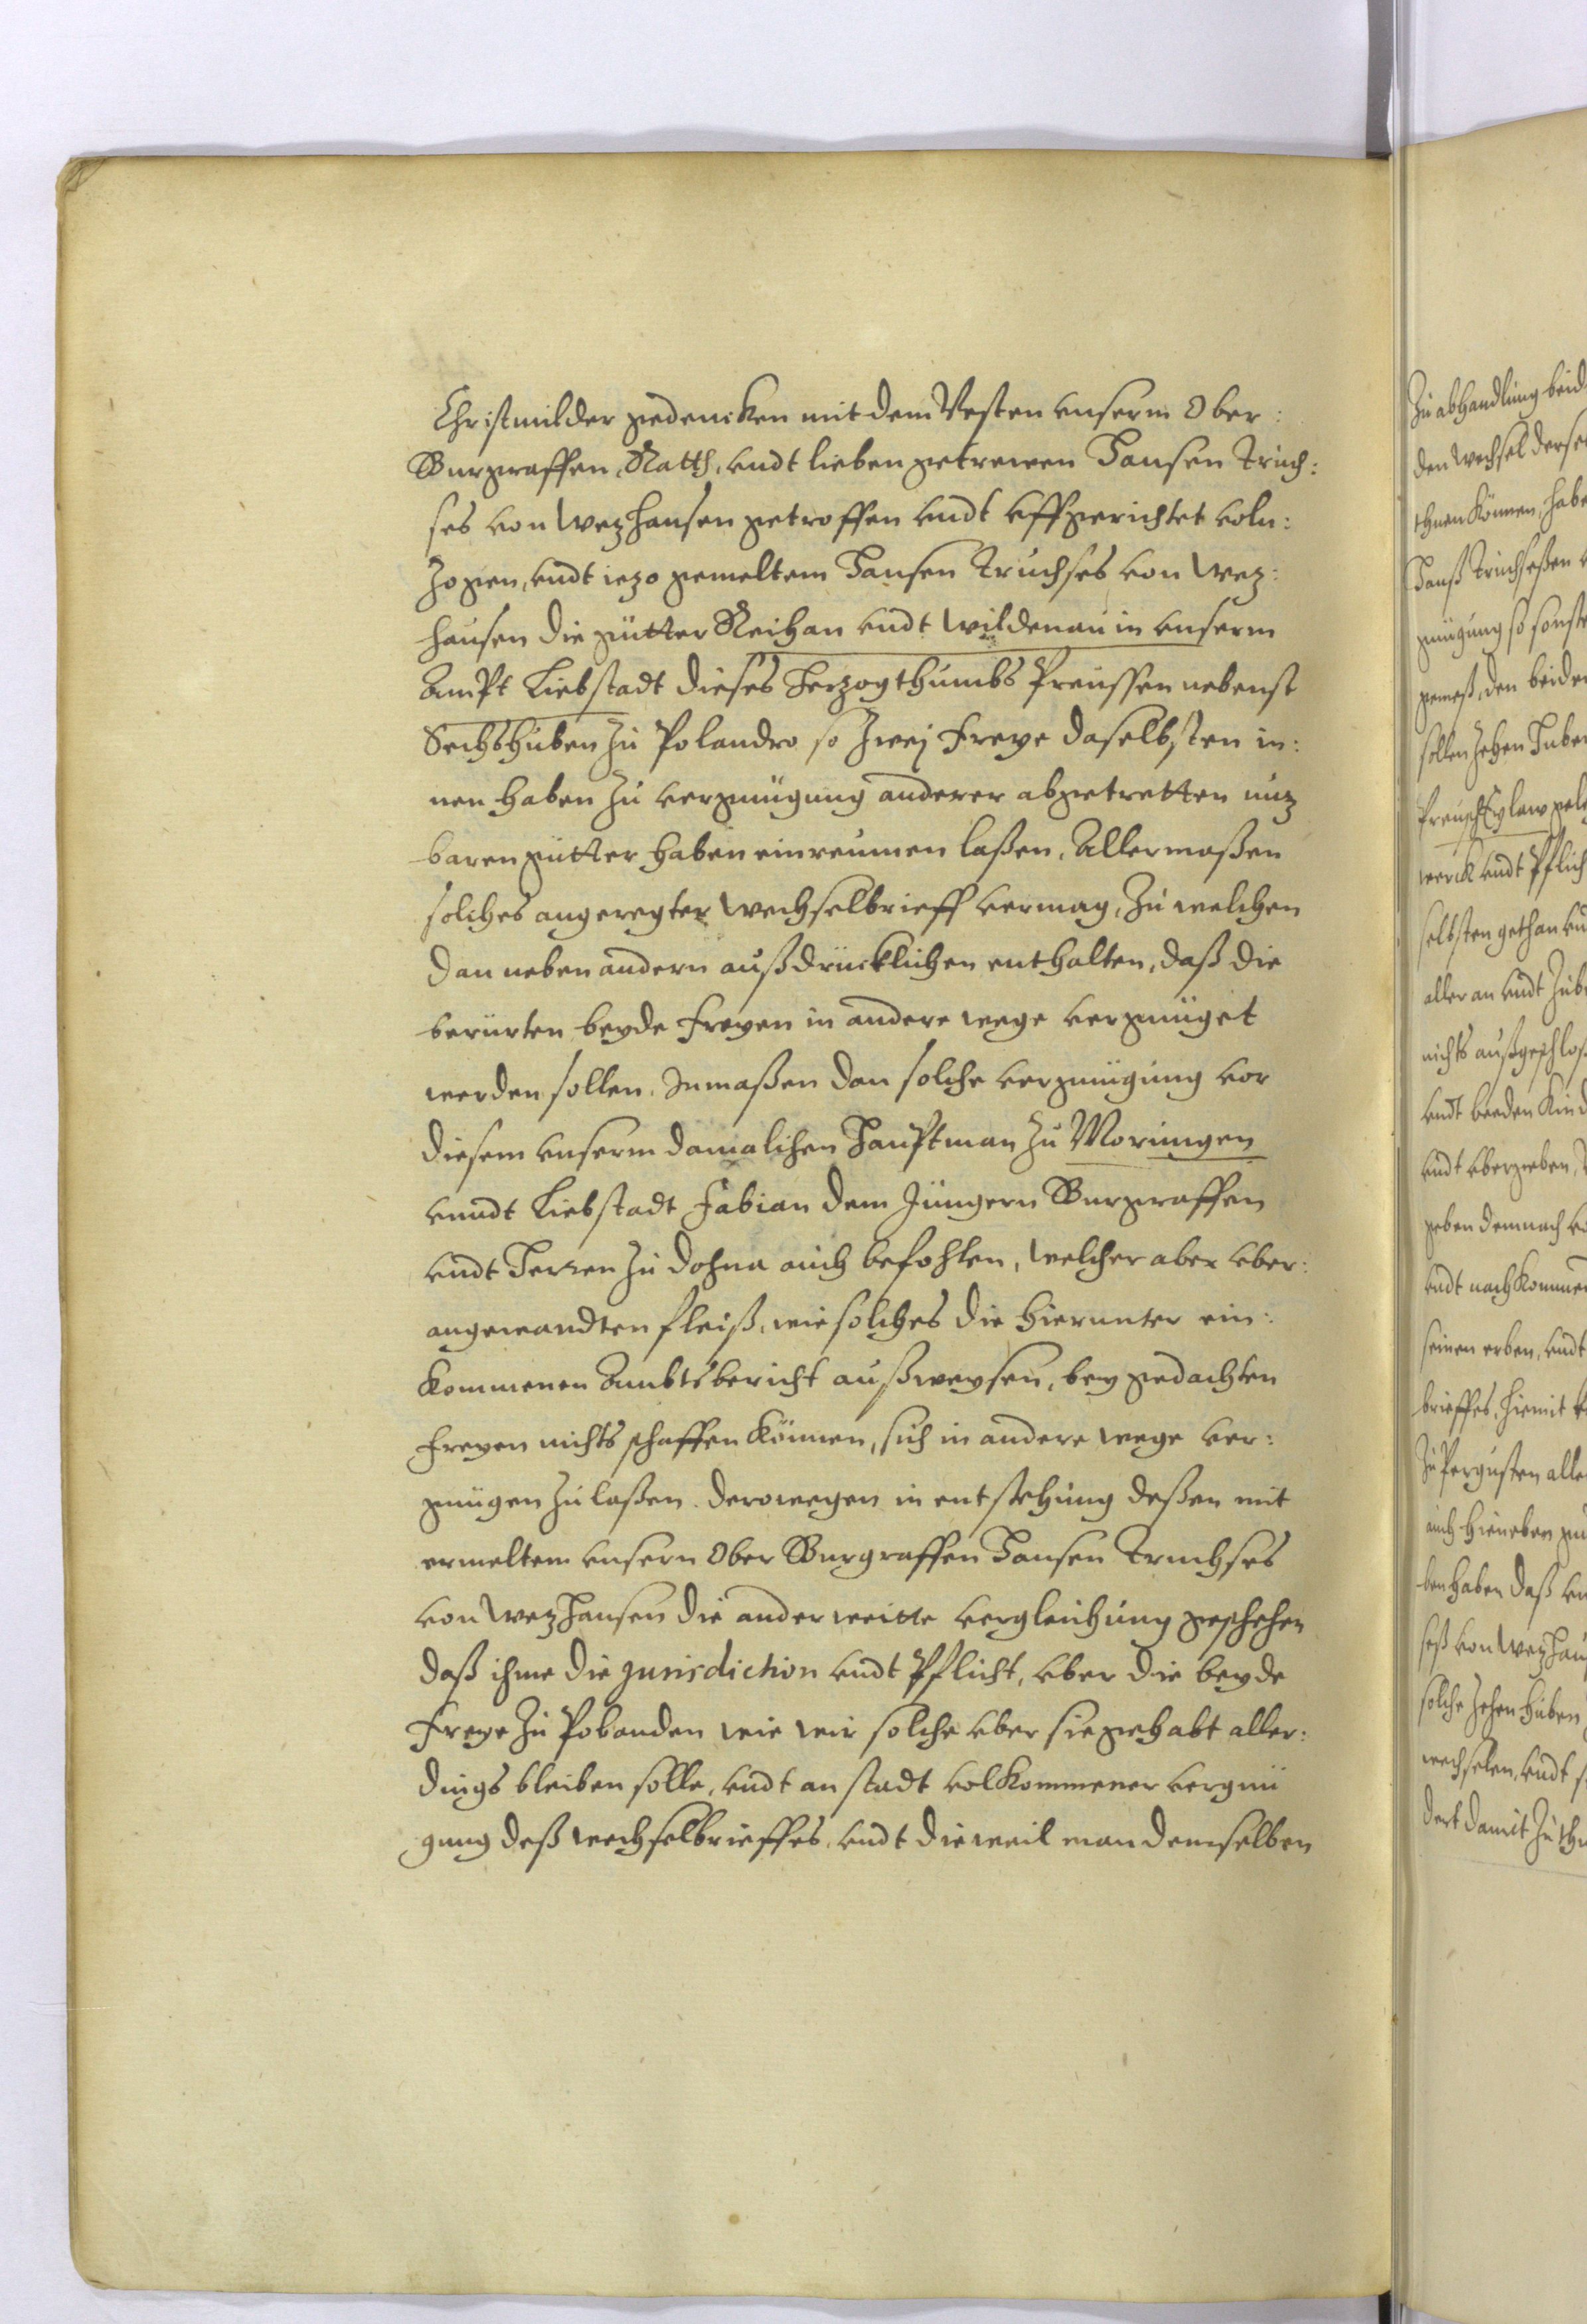 Christmilder gedencken mit dem Vesten vnserm Ober:
Burggraffen, Rath, vndt lieben getrewen Hansen Truch:
ses von Wezhausen getroffen vndt vffgerichtet voln:
zogen, vndt iezo gemeltem Hansen Truchses von Wez:
hausen die gütter Reichau vndt Wildenau in vnserm
Ampt Liebstadt dieses Herzogthumbs Preussen nebenst
Sechs huben zu Polandro so zwej Freye daselbsten in:
nen haben zu vergnügung anderer abgetretten nuz
baren gütter haben einreumen laßen, Allermaßen
solches angeregter Wechselbrieff vermag, Zu welchen
dan neben andern außdrücklichen enthalten, daß die
berürten beyde Freyen in andere wege vergnüget
werden sollen. Inmaßen dan solche vergnügung vor
diesem vnserm damalichen Hauptman zu Morungen
vnndt Liebstadt Fabian dem Jüngern Burggraffen
vndt Herren zu Dohna auch befohlen, welcher aber vber:
angewandten fleiß, wie solches die hierunter ein:
kommenen Ambtsbericht außweysen, bey gedachten
Freyen nichts schaffen können, sich in andere wege ver:
gnügen zu laßen. derowegen in entstehung deßen mit
ermeltem vnsern Ober Burggraffen Hansen Truchses
von Wezhausen die anderweitte vergleichung geschehen
daß ihme die Jurisdiction vndt Pflicht, vber die beyde
Freye zu Pobanden wie wir solche vber sie gehabt aller:
dings bleiben solle, vndt an stadt volkommener vergnü
gung deß wechselbrieffes, vndt dieweil man demselben
Zu abhandlung beid
den Wechsel derse
thuen können, habe
Hanß Truchseßen
gnügung so sonst
gemeß, den beiden
sollen zehen Huben
Preusch Eylaw gele
werck vndt Pflich
selbsten gethan
aller an vndt zub
nichts außgeschlos
vndt beeden Kind
vndt vbergeben,
geben demnach
vndt nachkommen
seinen erben, vndt
brieffes, hiemit
Zu Pergusten alle
auch hieneben
ben haben daß
seß von Wezhau
solche zehen huben
wechselen, vndt
dert damit zu thu